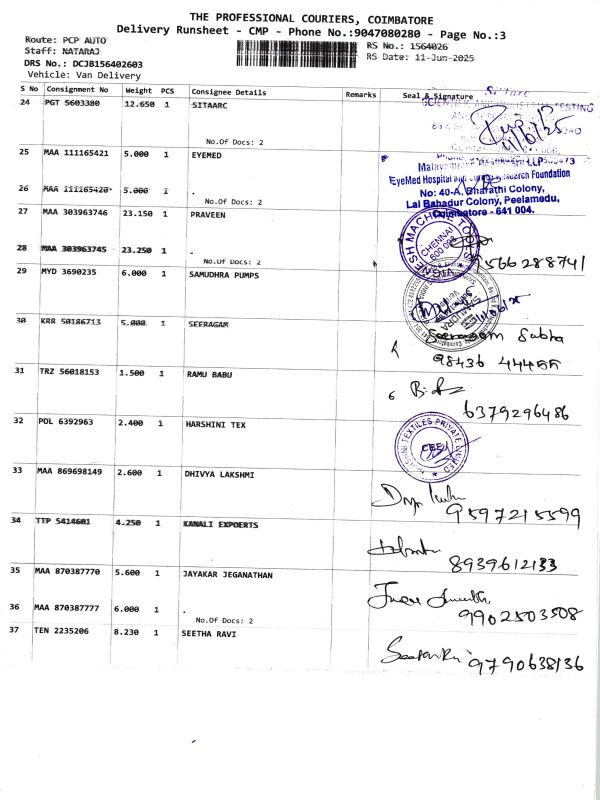 THE PROFESSIONAL COURIERS, COIMBATORE
Delivery Runsheet - CMP - Phone No.:9047080280 - Page No.:3
Route: PCP AUTO
RS No.: 1564026
Staff: NATARAJ
RS Date: 11-Jun-2025
DRS No.: DCJB156402603
Vehicle: Van Delivery
S No Consignment No Weight PCS Consignee Details Remarks Seal & Signature
24 PGT 5603380 12.650 1 SITAARC
No.Of Docs: 2
11/6/25
25 MAA 111165421 5.000 1 EYEMED
EyeMed Hospital and Research Foundation
26 MAA 111165420 5.000 1 .
No.Of Docs: 2
No: 40-A, Bharathi Colony,
Lal Bahadur Colony, Peelamedu,
Coimbatore - 641 004.
27 MAA 303963746 23.150 1 PRAVEEN
CHENNAI
600 098
28 MAA 303963745 23.250 1 .
No.Of Docs: 2
9566288741
29 MYD 3690235 6.000 1 SAMUDHRA PUMPS
30 KRR 50186713 5.000 1 SEERAGAM
Seeragam Subha
98436 44455
31 TRZ 56018153 1.500 1 RAMU BABU
6379296486
32 POL 6392963 2.400 1 HARSHINI TEX
TEXTILES PRIVATE LIMITED
CBE
33 MAA 869698149 2.600 1 DHIVYA LAKSHMI
9597215599
34 TTP 5414601 4.250 1 KANALI EXPOERTS
8939612133
35 MAA 870387770 5.600 1 JAYAKAR JEGANATHAN
36 MAA 870387777 6.000 1 .
No.Of Docs: 2
9902503508
37 TEN 2235206 8.230 1 SEETHA RAVI
9790638136